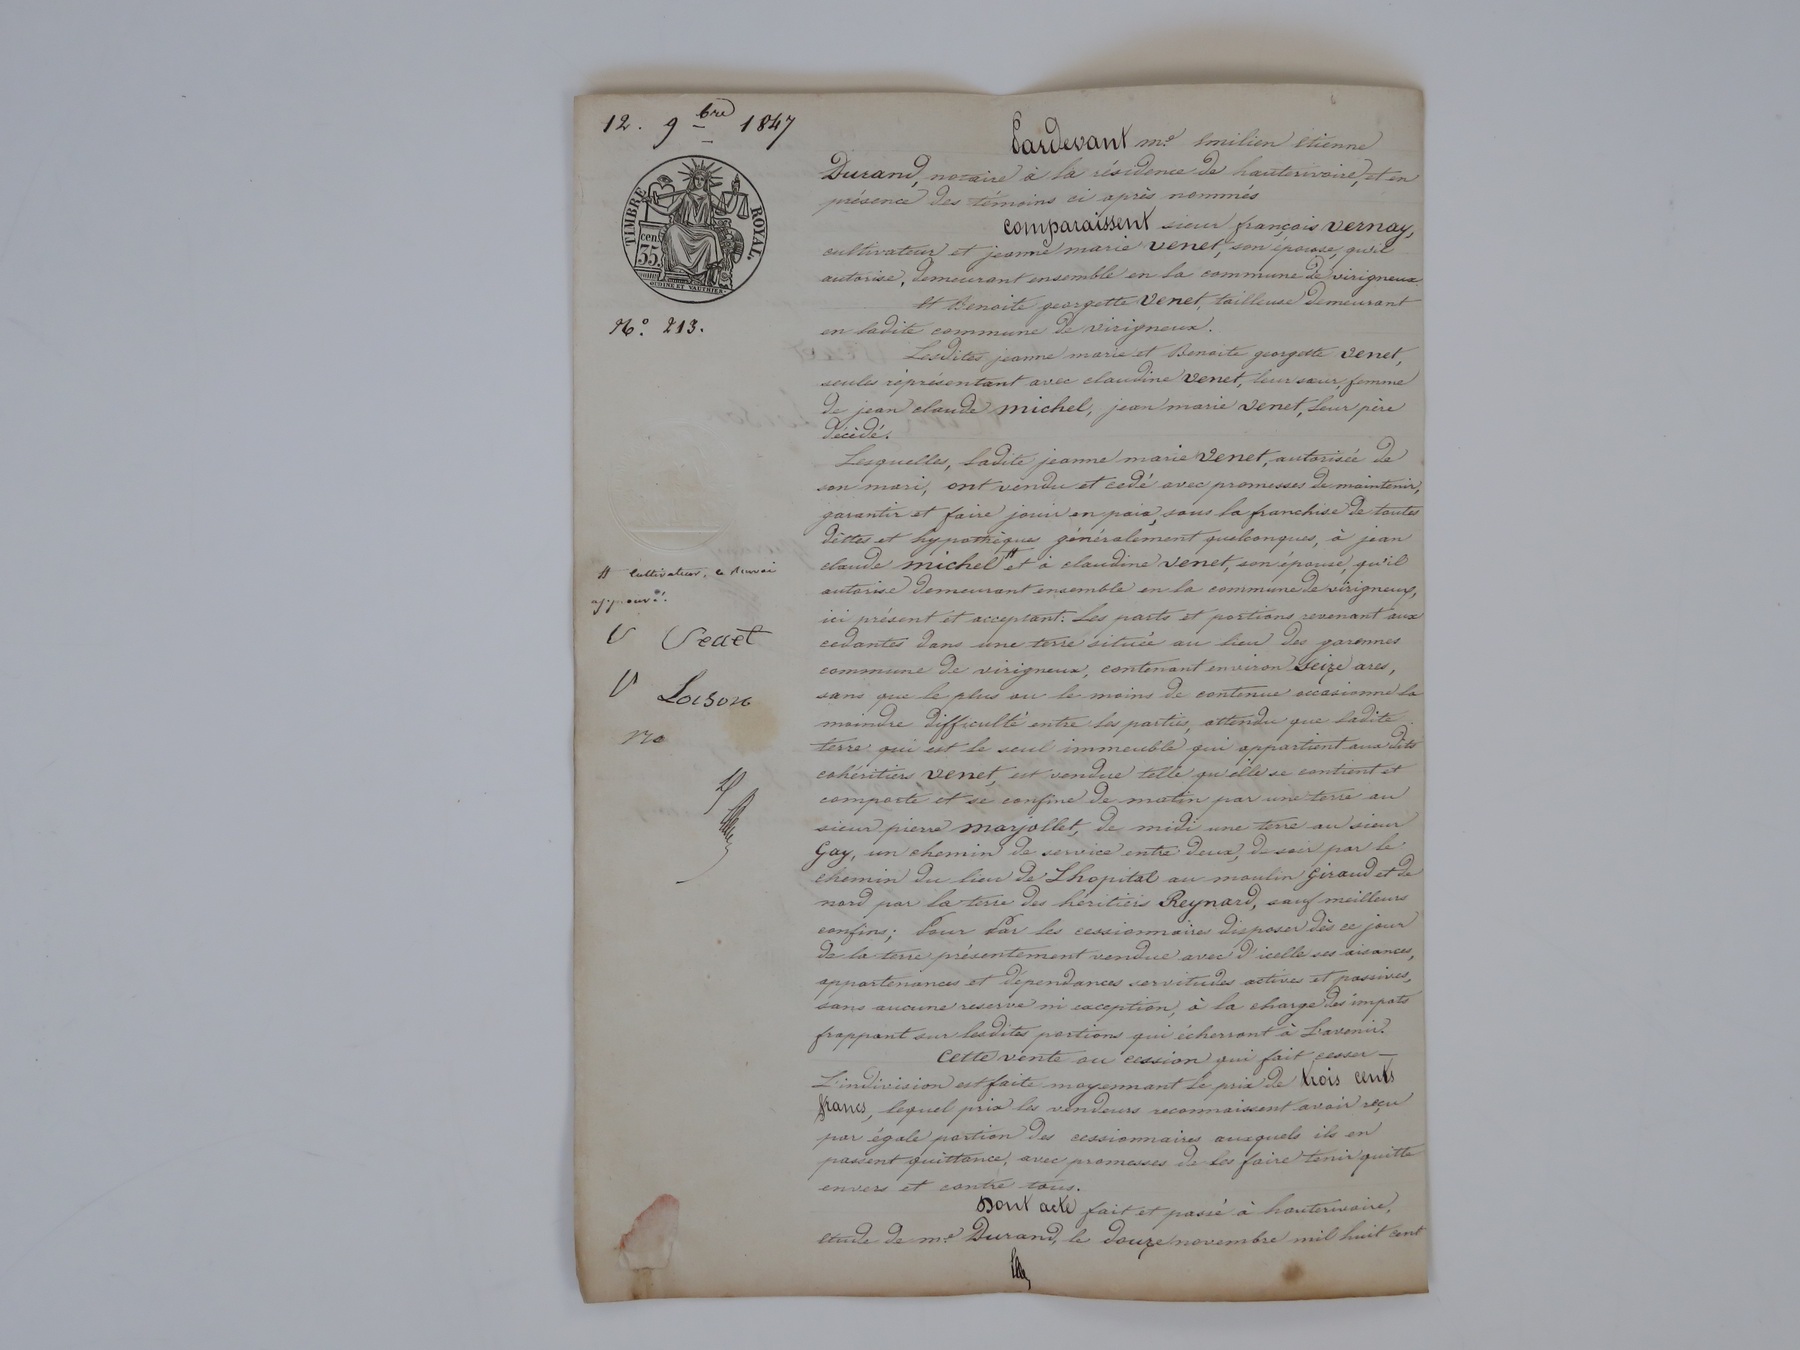 12. 9bre 1847
TIMBRE ROYAL.
cen.
35.
OUDINÉ ET VAUTHIER.
No. 213.
Pardevant me. Emilien Etienne
Durand, notaire à la résidence de hauterivoire, et en
présence des témoins ci après nommés
comparaissent sieur françois vernay,
cultivateur et jeanne marie venet, son épouse, qu'il
autorise, demeurant ensemble en la commune de virigneux
Et Benoite georgette venet, tailleuse demeurant
en ladite commune de virigneux.
Lesdites jeanne marie et Benoite georgette venet,
seules représentant avec claudine venet, leur sœur, femme
de jean claude michel, jean marie venet, leur père
décédé.
Lesquelles, ladite jeanne marie venet, autorisée de
son mari, ont vendu et cedé avec promesses de maintenir,
garantir et faire jouir en paix, sous la franchise de toutes
dettes et hypothèques généralement quelconques, à jean
claude michel # et à claudine venet, son épouse, qu'il
autorise demeurant ensemble en la commune de virigneux,
ici présent et acceptant: Les parts et portions revenant aux
cedantes dans une terre située au lieu des garennes
commune de virigneux, contenant environ seize ares,
sans que le plus ou le moins de contenue occasionne la
moindre difficulté entre les parties, attendu que ladite
terre qui est le seul immeuble qui appartient aux dits
cohéritiers venet, est vendue telle qu'elle se contient et
comporte et se confine de matin par une terre au
sieur pierre marjollet, de midi une terre au sieur
Gay, un chemin de service entre deux, de soir par le
chemin du lieu de Lhopital au moulin Giraud et de
nord par la terre des héritiers Reynard, sauf meilleurs
confins; Pour Par les cessionnaires disposer dès ce jour
de la terre présentement vendue avec d'icelle ses aisances,
appartenances et dépendances servitudes actives et passives,
sans aucune reserve ni exception, à la charge des impots
frappant sur lesdites portions qui écherront à L'avenir.
Cette vente ou cession qui fait cesser
L'indivision est faite moyennant le prix de trois cents
francs, lequel prix les vendeurs reconnaissent avoir reçu
par égale portion des cessionnaires auxquels ils en
passent quittance, avec promesses de les faire tenir quitte
envers et contre tous.
Dont acte fait et passé à hauterivoire,
etude de me. Durand, le douze novembre mil huit cent
# Cultivateur, ce renvoi
approuvé.
V Venet
V Loison